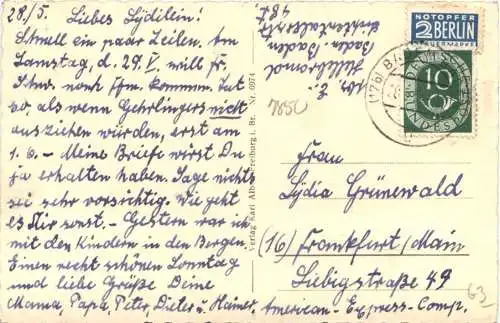 28./5. Liebes Lydilein!
Schnell ein paar Zeilen. Am
Samstag, d. 29. V. will fr.
noch Ffm. kommen. Tut
so, als wenn Gehrlingers nicht
ausziehen würden, erst am
1. 6. – Meine Briefe wirst Du
ja erhalten haben. Sage nichts
sei sehr vorsichtig. Wie geht
es Dir sonst. – Gestern war ich
mit den Kindern in den Bergen.
Einen recht schönen Sonntag
und liebe Grüße Deine
Mama, Papa, Peter, Dieter u. Rainer.
Verlag Karl Alber Freiburg i. Br. Nr. 6974
Hillebrand
Baden-Baden
Lichtentalerstr.
48
7850
NOTOPFER
2 BERLIN
STEUERMARKE
(17b) BAD
DEUTSCHE
BUNDESPOST
10
Frau
Lydia Grünewald
(16) Frankfurt/Main
Liebigstraße 49
American-Express-Comp.
63